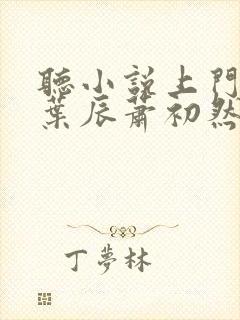 聽小説上門
葉辰蕭初然
丁夢林